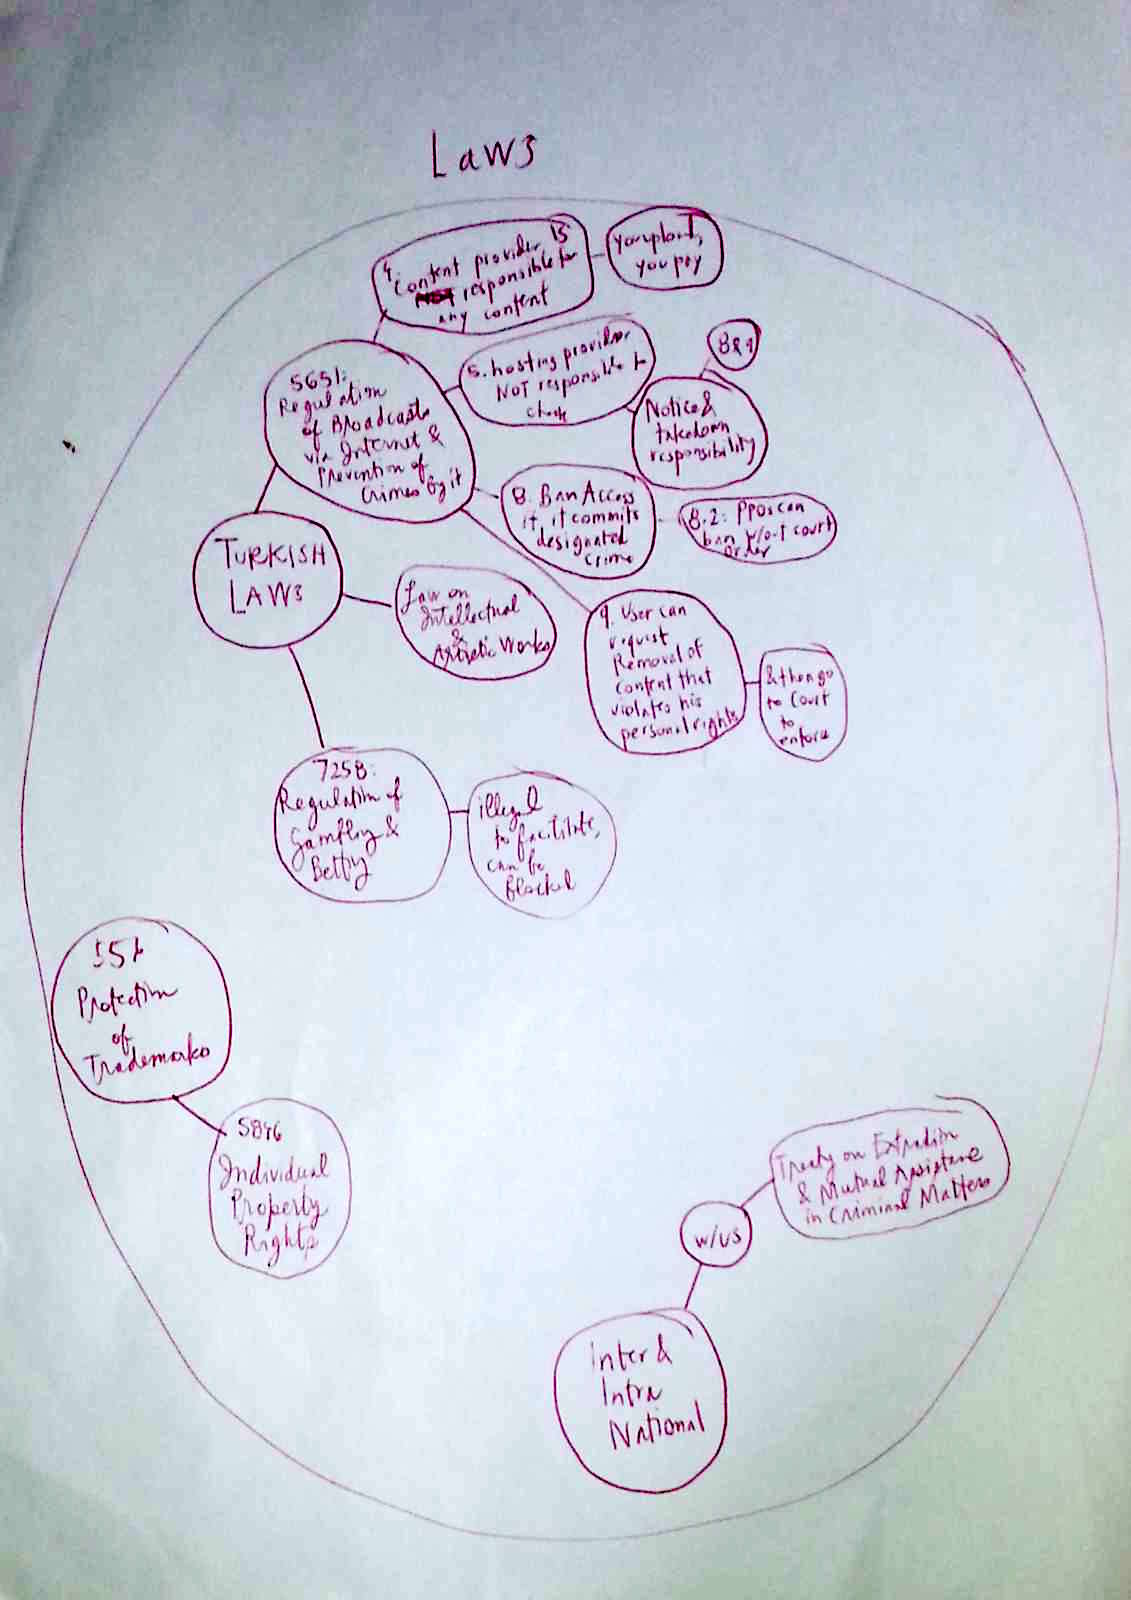 Laws
4. Content provider IS
NOT responsible for
any content
you upload,
you pay
5651:
Regulation
of Broadcasts
via Internet &
Prevention of
Crimes by it
5. hosting provider
NOT responsible to
check
8&9
Notice &
takedown
responsibility
8. Ban Access
if it commits
designated
crime
8.2: PPOs can
ban w/o-t court
order
TURKISH
LAWS
Law on
Intellectual
&
Artistic Works
9. User can
request
Removal of
content that
violates his
personal rights
& then go
to Court
to
enforce
7258:
Regulation of
Gambling &
Betting
illegal
to facilitate,
can be
Blocked
Protection
of
Trademarks
5846
Individual
Property
Rights
Treaty on Extradition
& Mutual Assistance
in Criminal Matters
w/US
Inter &
Intra
National